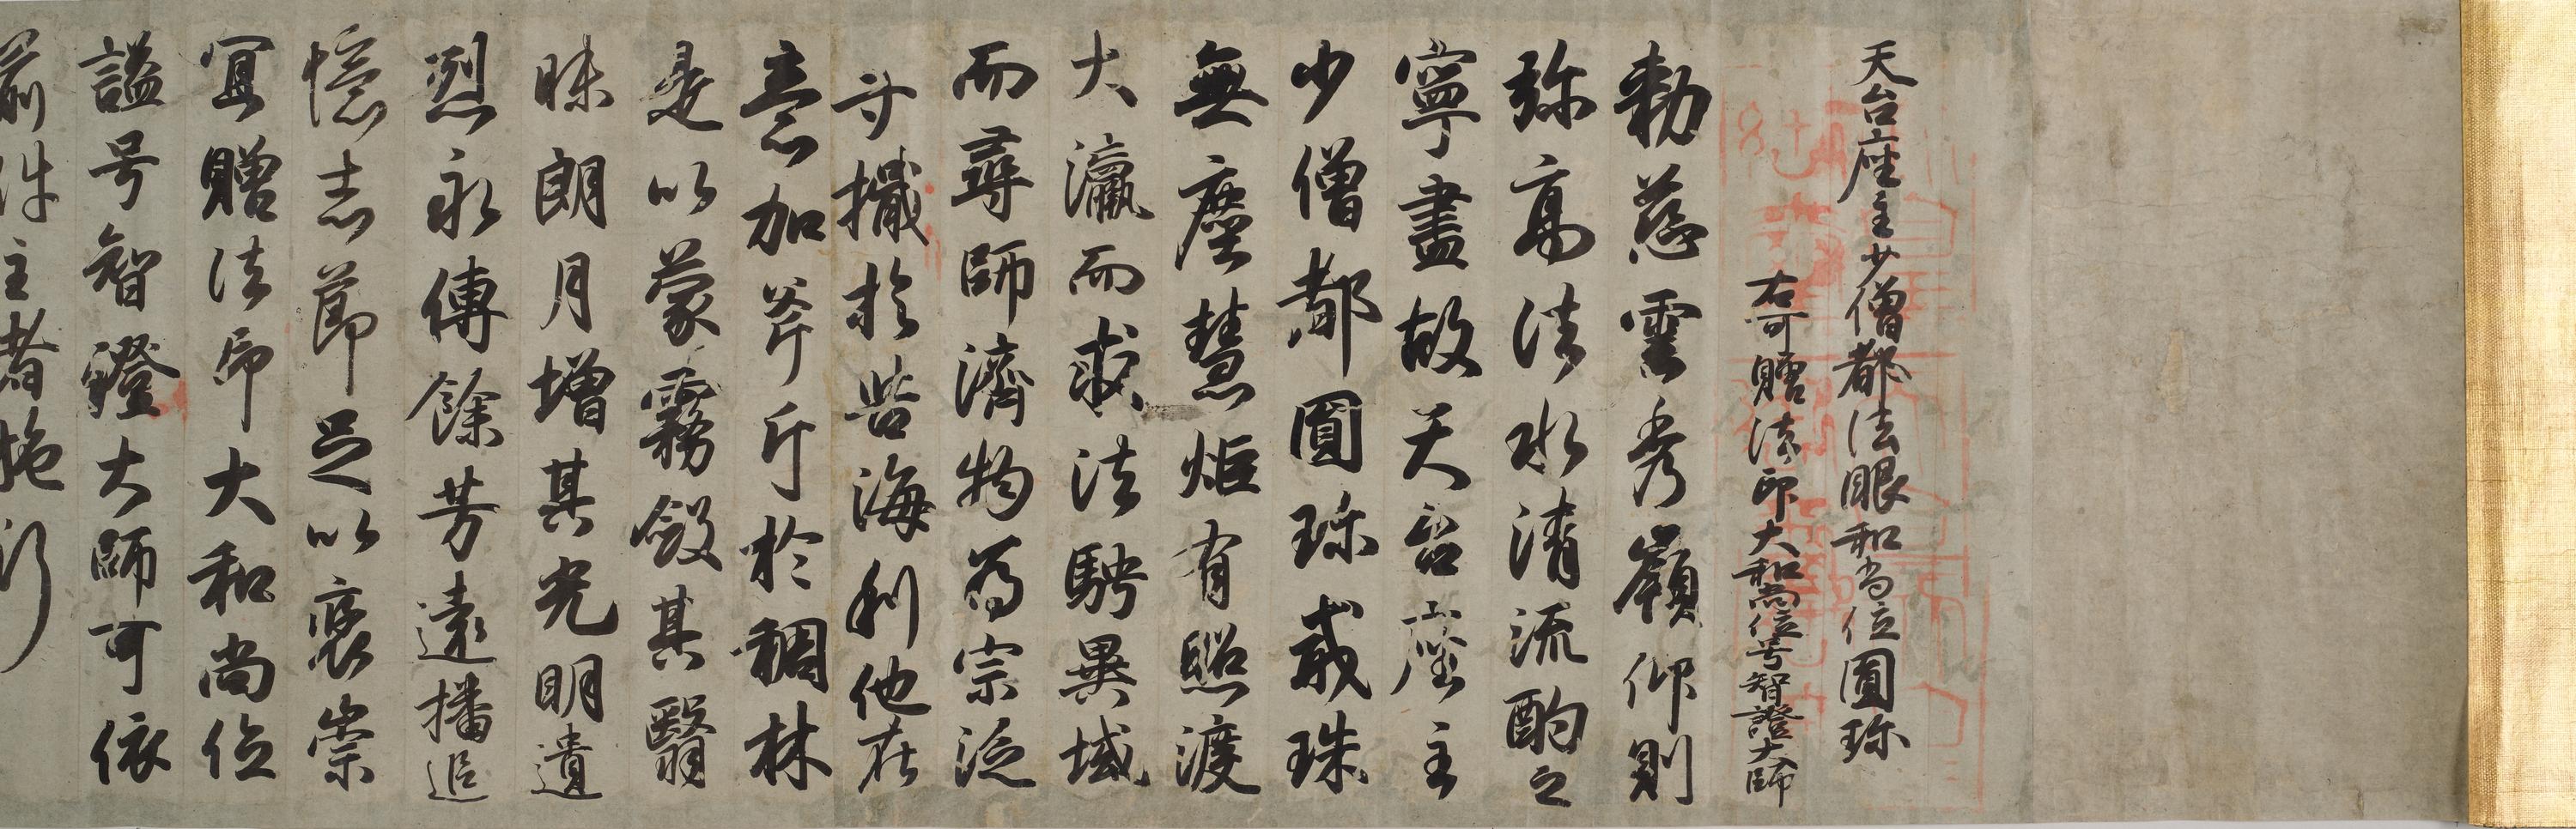 天台座主少僧都法眼和尚位圓珎
右可贈法印大和尚位号智證大師
勅慈雲秀嶺仰則
弥高法水清流酌之
寧盡故天台座主
少僧都圓珎戒珠
無塵慧炬有照渡
大瀛而求法騁異域
而尋師濟物為宗泛
於苦海利他在
意加斧斤於稠林
是以蒙霧斂其翳
昧朗月增其光明遺
烈永傳餘芳遠播追
憶志節足以襃崇
冝贈法印大和尚位
謚号智證大師可依
前件主者施行